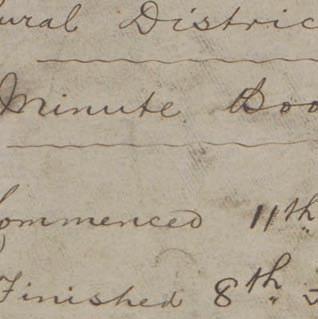 ural District
Minute Boo
Commenced 11th
Finished 8th